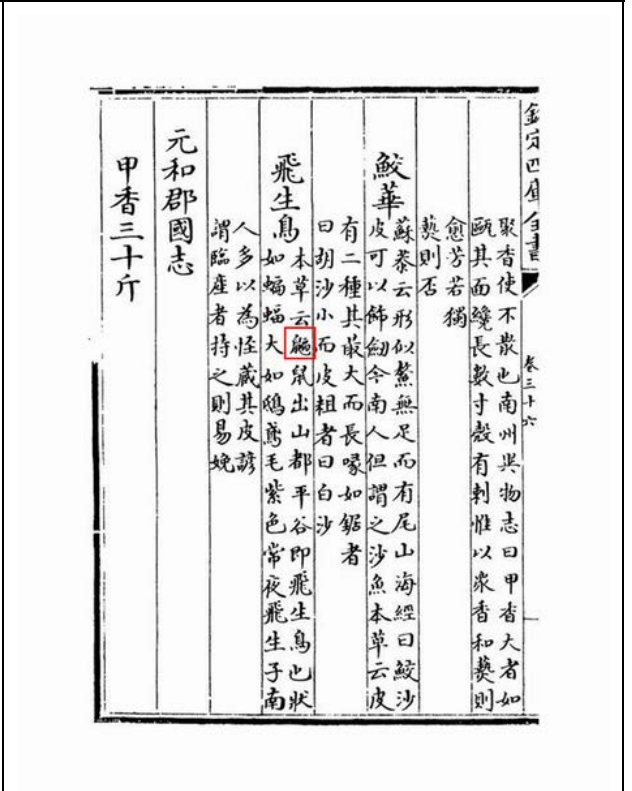 欽定四庫全書
卷三十六
聚香使不散也南州異物志曰甲香大者如
甌其面纔長數寸殻有刺惟以衆香和爇則
愈芳若獨
爇則否
鮫華
蘇恭云形似鱉無足而有尾山海經曰鮫沙
皮可以飾劔今南人但謂之沙魚本草云皮
有二種其最大而長喙如鋸者
曰胡沙小而皮粗者曰白沙
飛生鳥
本草云鼠出山都平谷即飛生鳥也狀
如蝙蝠大如鴟鳶毛紫色常夜飛生子南
人多以為怪藏其皮諺
謂臨產者持之則易娩
元和郡國志
甲香三十斤